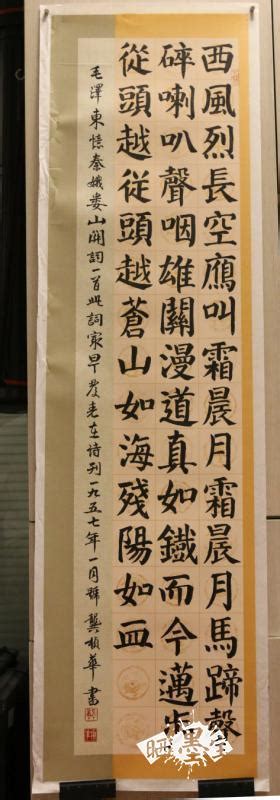 西風烈長空鴈叫霜晨月霜晨月馬蹄聲
碎喇叭聲咽雄關漫道真如鐵而今邁步
從頭越從頭越蒼山如海殘陽如血
毛澤東憶秦娥婁山關詞一首此詞最早發表在詩刊一九五七年一月號龔楨華書
晒墨宝